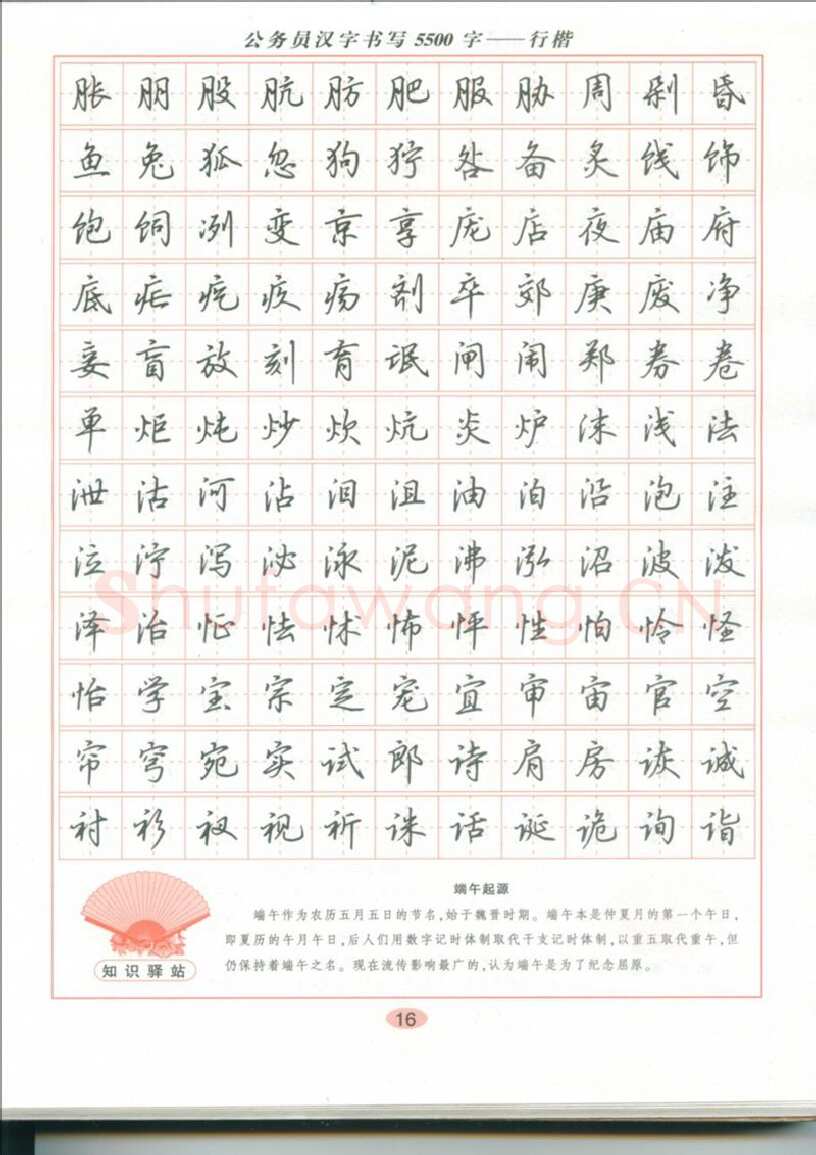 公务员汉字书写 5500 字——行楷
胀 朋 股 肮 肪 肥 服 胁 周 剁 昏
鱼 兔 狐 忽 狗 狞 咎 备 炙 饯 饰
饱 饲 冽 变 京 享 庞 店 夜 庙 府
底 疟 疙 疚 疡 剂 卒 郊 庚 废 净
妾 盲 放 刻 育 氓 闸 闹 郑 券 卷
单 炬 炖 炒 炊 炕 炎 炉 沫 浅 法
泄 沽 河 沾 泪 沮 油 泊 沿 泡 注
泣 泞 泻 泌 泳 泥 沸 泓 沼 波 泼
泽 治 怔 怯 怵 怖 怦 性 怕 怜 怪
怡 学 宝 宗 定 宠 宜 审 宙 官 空
帘 穹 宛 实 试 郎 诗 肩 房 诙 诚
衬 衫 衩 视 祈 诛 话 诞 诡 询 诣
Shufawang.CN
端午起源
端午作为农历五月五日的节名,始于魏晋时期。端午本是仲夏月的第一个午日,
即夏历的午月午日,后人们用数字记时体制取代干支记时体制,以重五取代重午,但
仍保持着端午之名。现在流传影响最广的,认为端午是为了纪念屈原。
知识驿站
16